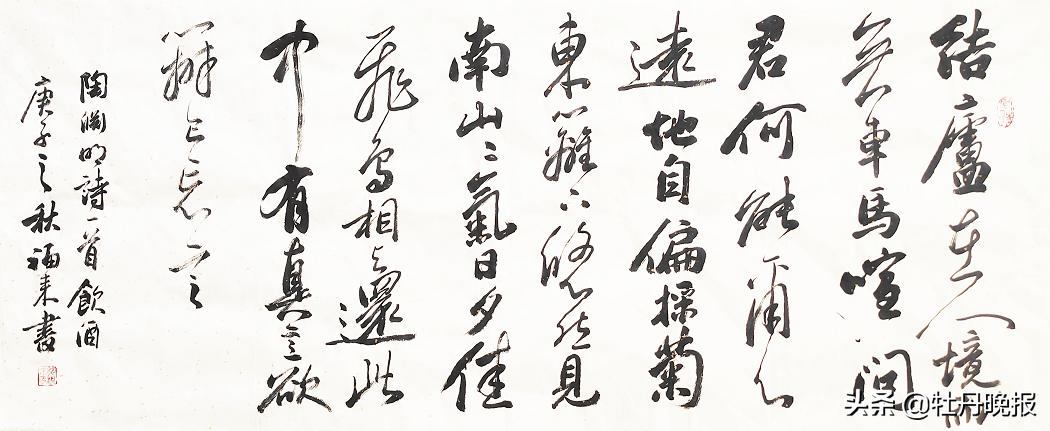 結廬在人境而
無車馬喧問
君何能爾心
遠地自偏採菊
東籬下悠然見
南山〻氣日夕佳
飛鳥相与還此
中有真意欲
辨已忘言
陶淵明詩一首飲酒
庚子之秋福来書
头条 @牡丹晚报